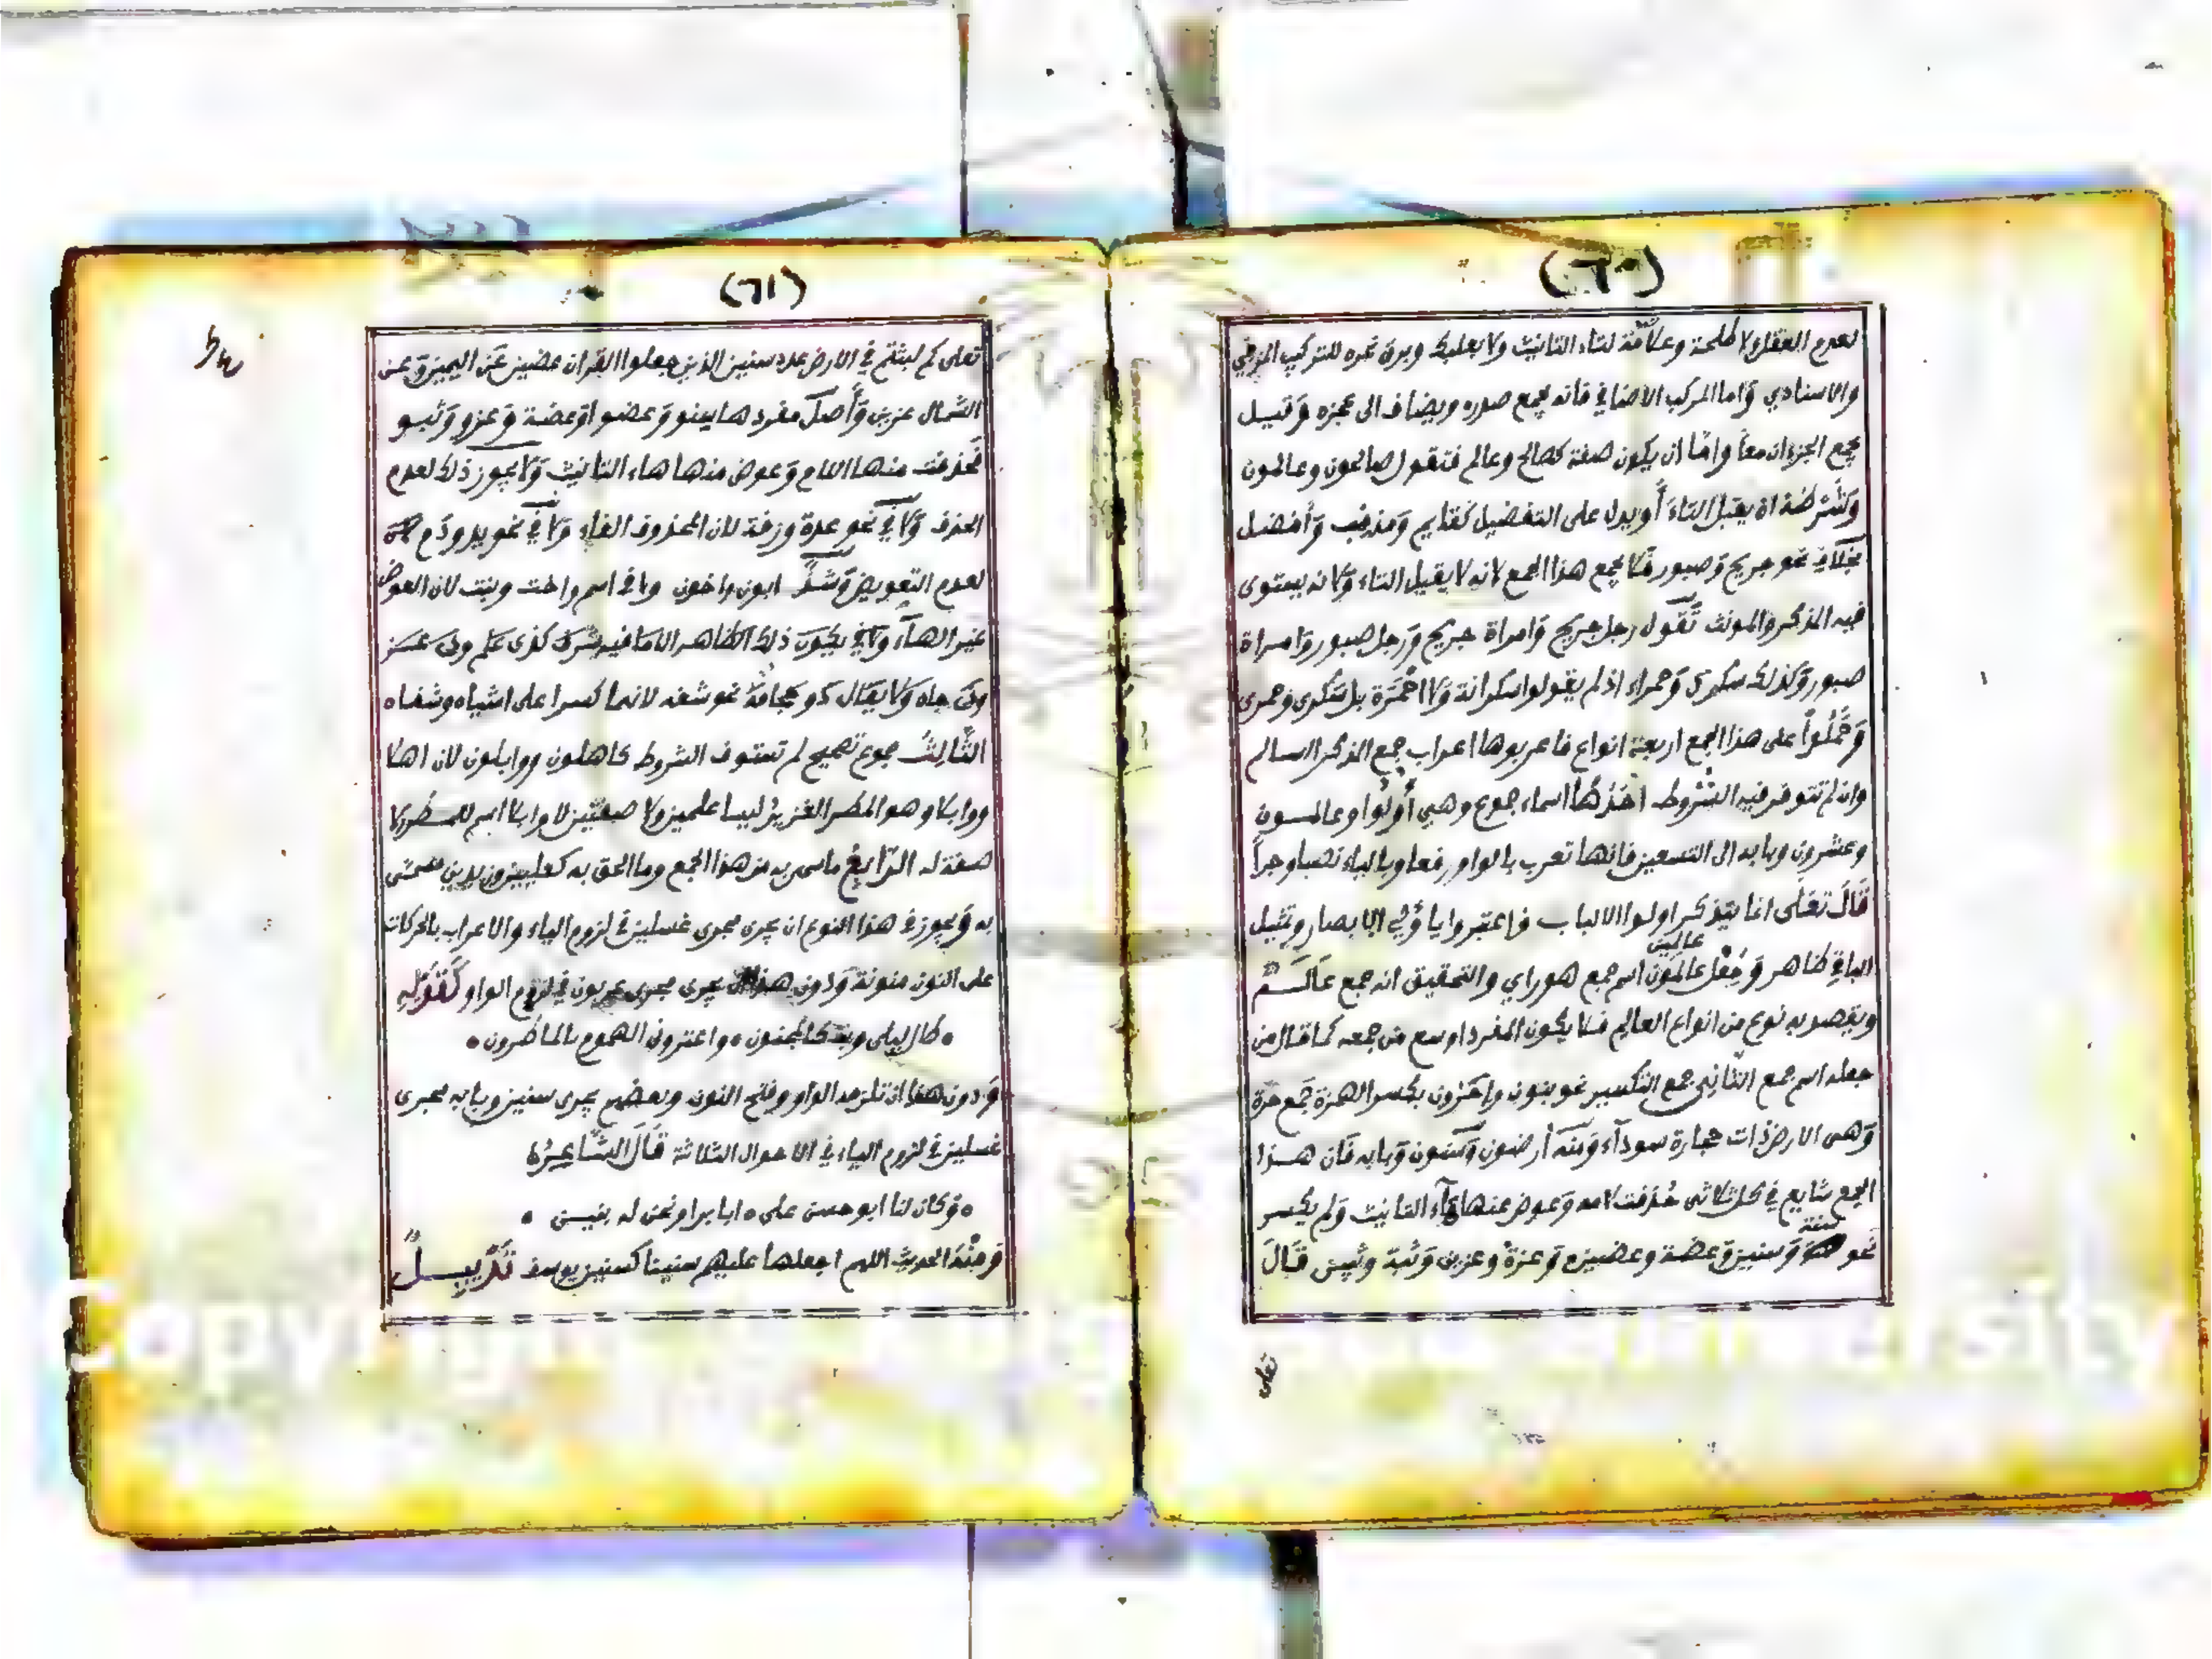 (٦٠)
لعدم العقل ولا طلحة وعلامة لتاء التانيث ولا بعلبك وبرق نحره للتركيب المزجي
والاسنادي واما المركب الاضافي فانه يجمع صدره ويضاف الى عجزه وقيل
يجمع الجزوان معا واما ان يكون صفة كصالح وعالم فتقول صالحون وعالمون
وشرطه ان يقبل التاء أو يدل على التفضيل كقايم ومذنب وأفضل
بخلاف نحو جريح وصبور فلا يجمع هذا الجمع لانه لا يقبل التاء ولانه يستوى
فيه المذكر والمونث تقول رجل جريح وامراة جريح ورجل صبور وامراة
صبور وكذلك سكرى وحمراء اذ لم يقولوا سكرانة ولا احمرة بل سكرى وحمرى
وحملوا على هذا الجمع اربعة انواع فاعربوها اعراب جمع المذكر السالم
وان لم تتوفر فيه الشروط احدها اسماء جموع وهي أولوا وعالمون
وعشرون وبابه الى التسعين فانها تعرب بالواو رفعا وبالياء نصبا وجراً
قال تعلى انما يتذكر اولوا الالباب فاعتبروا يا أولي الابصار وتمثيل
عالمين
الباقي ظاهر وجعل عالمون اسم جمع هو راي والتحقيق انه جمع عالم
ويقصد به نوع من انواع العالم فلا يكون المفرد اوسع من جمعه كما قال من
جعله اسم جمع الثاني جمع التكسير نحو بنون واحرون بكسر الهمزة جمع حرة
وهى الارض ذات حجارة سوداء ومنه أرضون وسنون وبابه فان هذا
الجمع شايع في كل ثلاثى حذفت لامه وعوض عنها هاء التانيث ولم يكسر
سنة
نحو وسنين وعضة وعضين وعزة وعزين وثبة وثبين قال
تعلى
(٦١)
تعلى كم لبثتم في الارض عدد سنين الذين جعلوا القران عضين عن اليمين وعن
الشمال عزين وأصل مفردها سنو وعضو او عضة وعزو وثبو
فحذفت منها اللام وعوض منها هاء التانيث ولا يجوز ذلك لعدم
الحذف ولا في نحو عدة وزنة لان المحذوف الفاء ولا في نحو يد ودم
لعدم التعويض وشذ ابون واخون ولا في اسم واخت وبنت لان العوض
غير الهاء
الثالث جموع تصحيح لم تستوف الشروط كاهلون ووابلون لان اهلا
ووابلا وهو المطر الغزير ليسا علمين ولا صفتين لان وابلا اسم للمطر لا
صفة له الرابع ماسمي به من هذا الجمع وما الحق به كعليين وزيدين مسمى
به ويجوز في هذا النوع ان يجرى مجرى غسلين في لزوم الياء والاعراب بالحركات
على النون منونة ودون هذا ان يجرى مجرى عربون في لزوم الواو كقوله
• طال ليلى وبت كالمجنون • واعترونى الهموم بالماطرون •
ودون هذا ان تلزمه الواو وفتح النون وبعضهم يجرى سنين وبابه مجرى
غسلين في لزوم الياء في الاحوال الثلاثة قال الشاعر
• وكان لنا ابو حسن على • ابا برا ونحن له بنين •
ومنه الحديث اللهم اجعلها عليهم سنينا كسنين يوسف تذييل